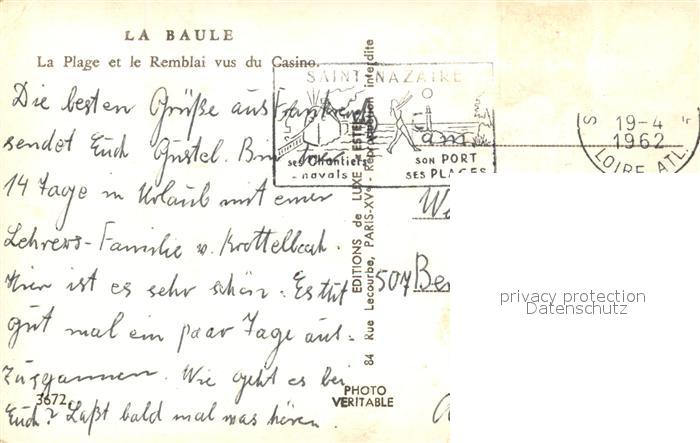 LA BAULE
La Plage et le Remblai vus du Casino.
Die besten Grüße aus Frankreich
sendet Euch Gustel. Bin hier
14 Tage in Urlaub mit einer
Lehrers-Familie v. Krottelbach.
Hier ist es sehr schön. Es tut
gut mal ein paar Tage aus-
zuspannen. Wie geht es bei
Euch? Laßt bald mal was hören.
3672
EDITIONS de LUXE "ESTEL"
84 Rue Lecourbe, PARIS-XVe - Reproduction interdite
PHOTO
VERITABLE
SAINT NAZAIRE
ses chantiers
navals
SON PORT
SES PLAGES
19-4
1962
LOIRE ATL.
Fam.
507 Be
privacy protection
Datenschutz